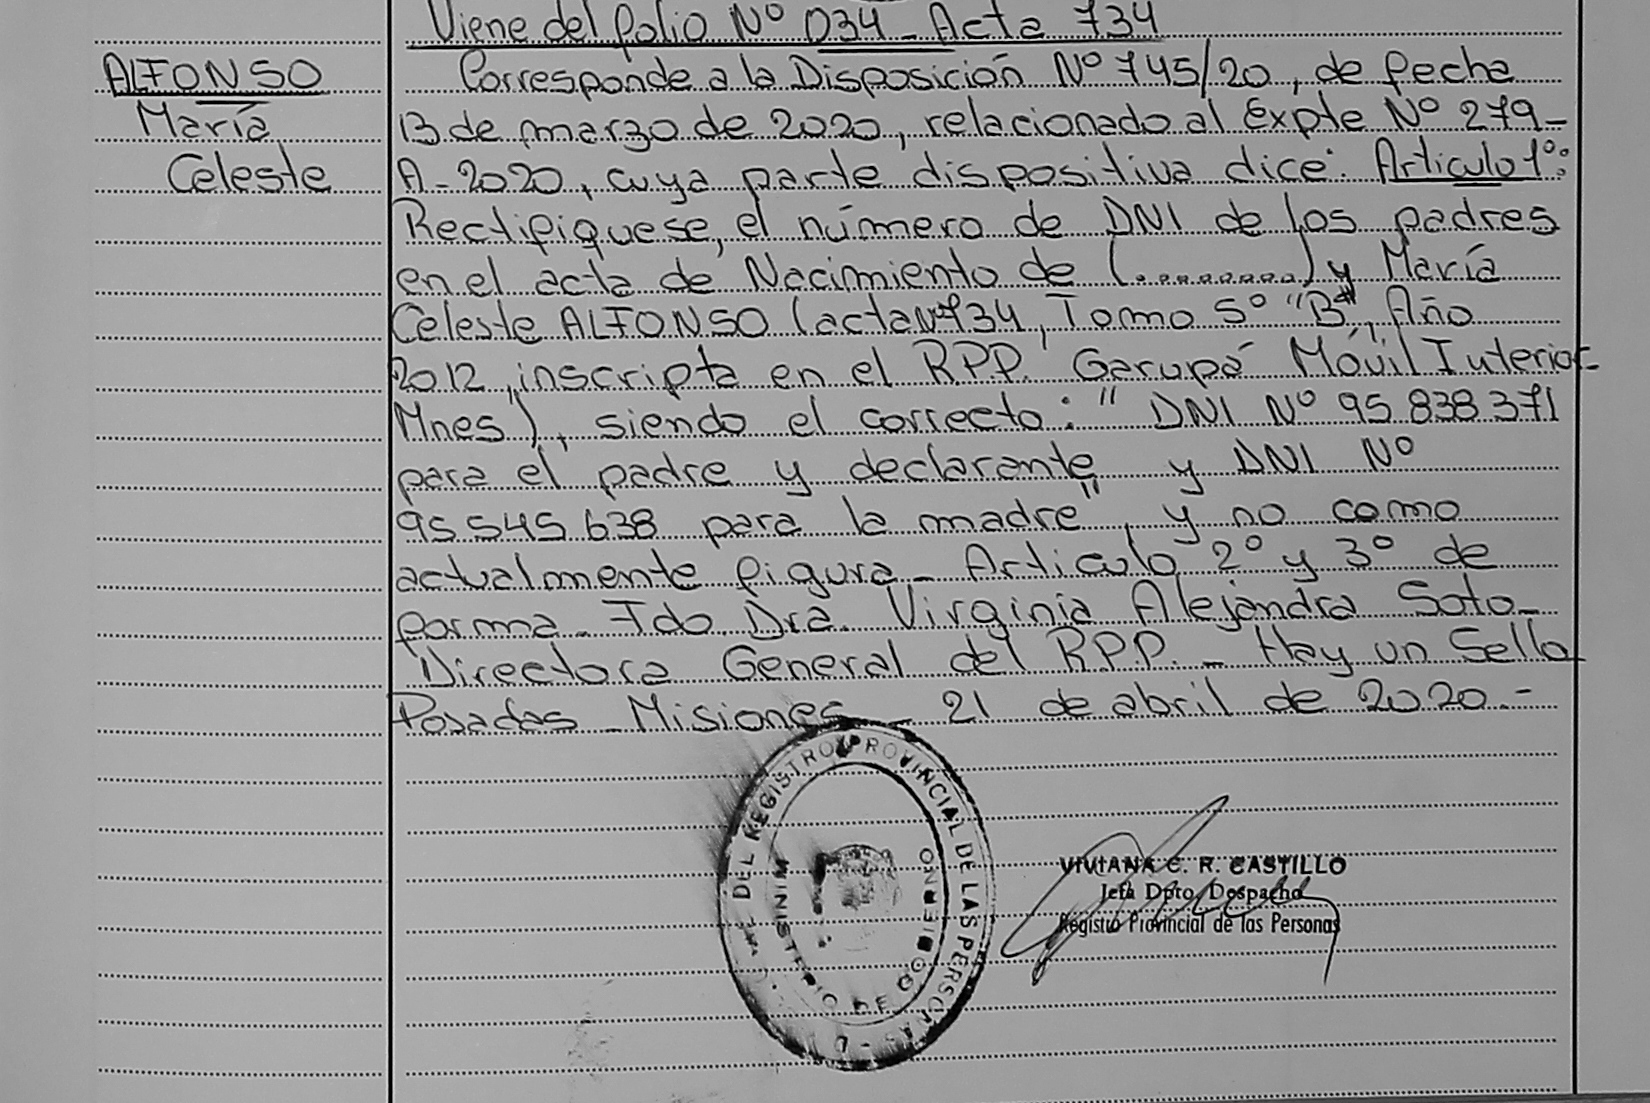 Viene del folio Nº 034 - Acta 734
ALFONSO
María
Celeste
Corresponde a la Disposición Nº 745/20, de fecha
13 de marzo de 2020, relacionado al Expte Nº 279-
A-2020, cuya parte dispositiva dice: Articulo 1º:
Rectifiquese, el número de DNI de los padres
en el acta de Nacimiento de (.........) y María
Celeste ALFONSO (acta Nº 734, Tomo 5º "B", Año
2012, inscripta en el RPP. Garupá Móvil Interior-
Mnes), siendo el correcto: "DNI Nº 95.838.371
para el padre y declarante y DNI Nº
95.545.638 para la madre", y no como
actualmente figura- Articulo 2º y 3º de
forma- Fdo. Dra. Virginia Alejandra Soto-
Directora General del RPP.- Hay un Sello
Posadas - Misiones - 21 de abril de 2020.-
DEL REGISTRO PROVINCIAL DE LAS PERSONAS
MINISTERIO DE GOBIERNO
VIVIANA C. R. CASTILLO
Jefa Dpto. Despacho
Registro Provincial de las Personas